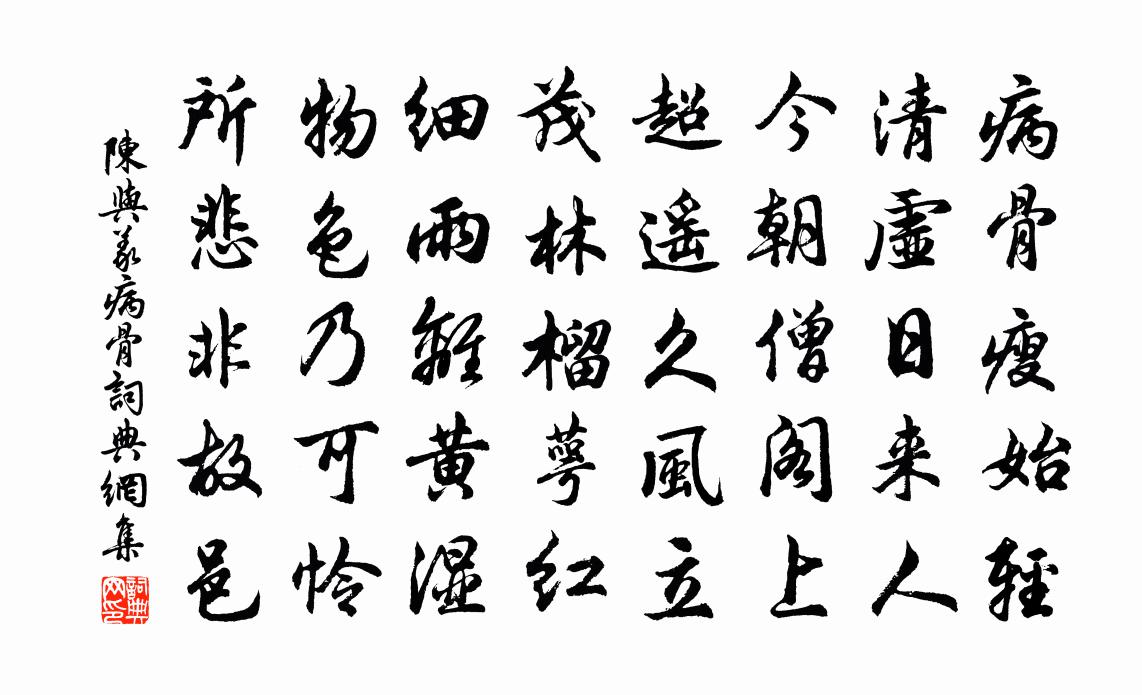 病骨瘦始輕
清虛日来人
今朝僧阁上
超遥久風立
茂林榴萼红
细雨離黄湿
物色乃可怜
所悲非故邑
陳與義病骨詞典網集
詞典网印